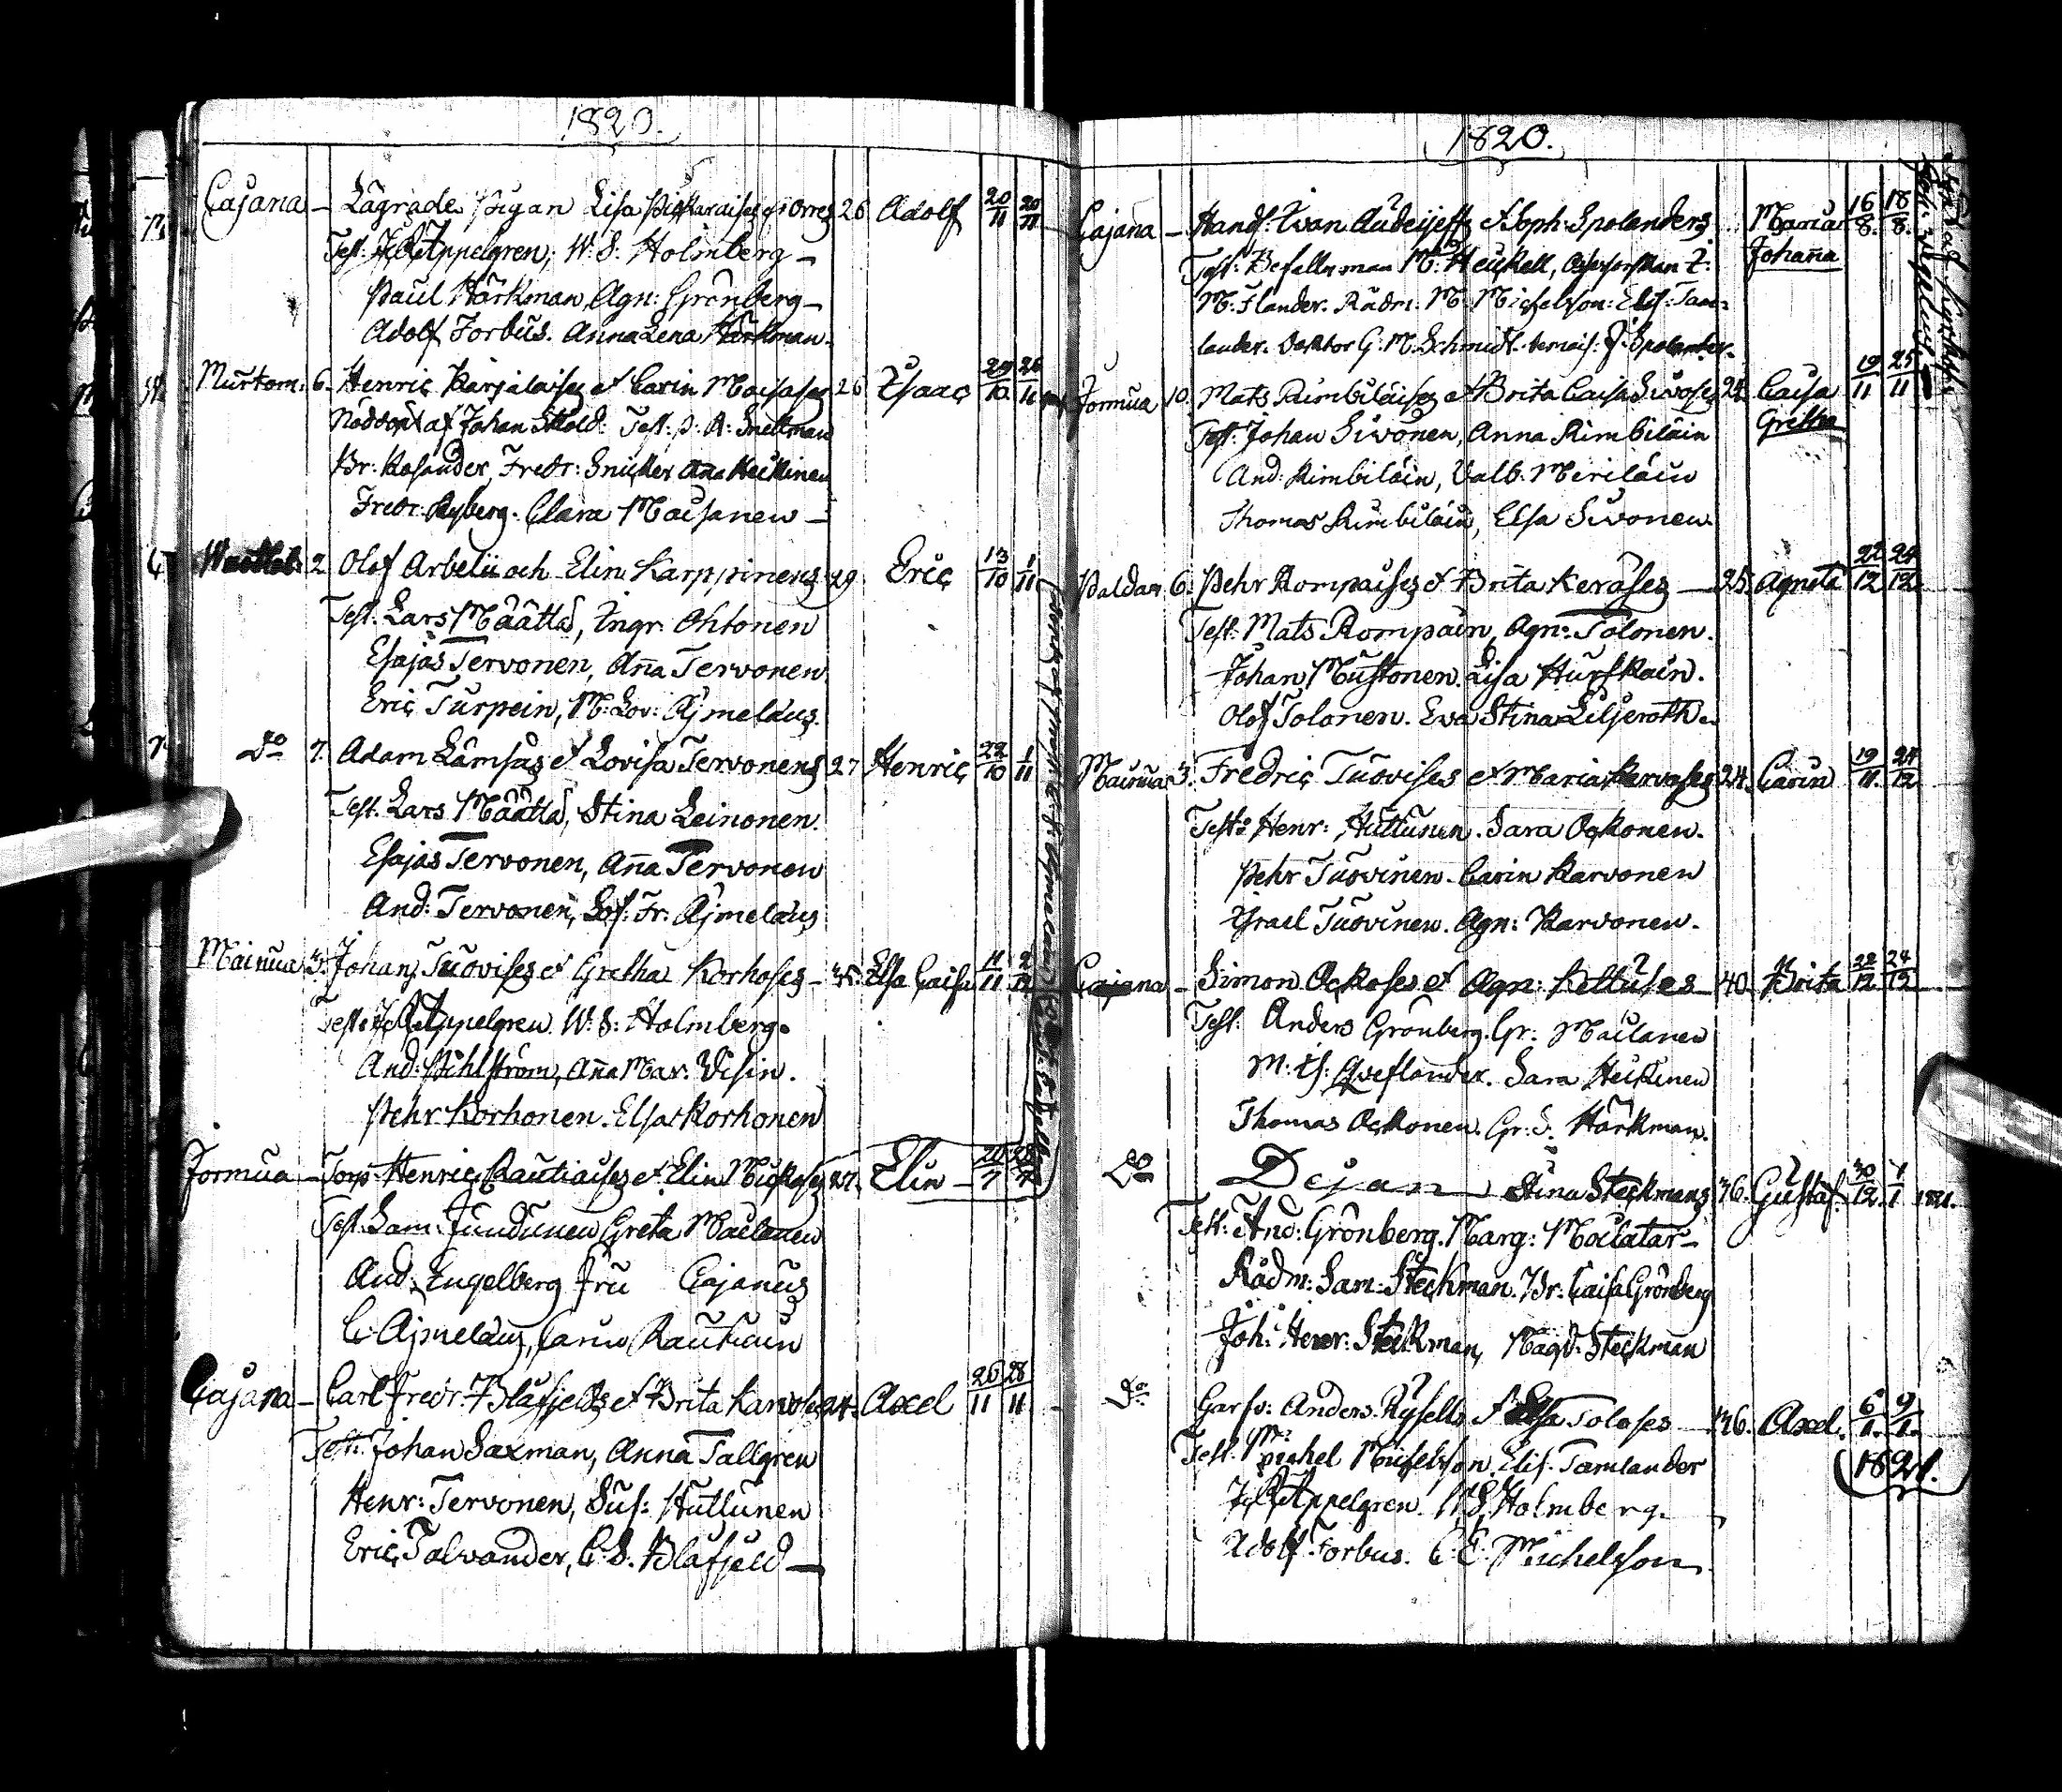 1820.
Cajana – Lägrade Pigan Lisa 26 Adolf 20/11 20/11
Test: Appelgren, W. S. Holmberg –
Paul Härkman, Agn: Grönberg –
Adolf Forbus. Anna Lena Härkman.
Murtom: 6. Henric Karjalaises et Carin Moisases 26 Isaac 29/10 26/11
Nöddöpt af Johan Sköld. Test: P. A. Snellman
Br: Rosander, Fredr: Snicker Aña Heikkinen
Fredr: Clara Moisanen –
2 Olof Arbelii och Elin Karppinens 29 Eric 13/10 1/11
Test: Lars Määttä, Ingr: Ohtonen
Esajas Tervonen, Aña Tervonen
Eric Turpein, M: Lov: Ajmelaus.
Do 7. Adam Lämsäs et Lovisa Tervonens 27 Henric 22/10 1/11
Test. Lars Määttä, Stina Leinonen.
Esajas Tervonen, Aña Tervonen
And: Tervonen, Sof: Fr: Ajmelaus
Mainua 3. Johan Tuovises et Gretha Korhoses – 35. Elsa Caisa 11/11 2/12
Test: Appelgren W. S: Holmberg.
And: Pihlström, Aña Mar: Visin.
Pehr Korhonen. Elsa Korhonen
Jormua – Torp: Henric Rautiaises et Elin Mickoses 27. Elin –
Test: Sam: Junduneu Greta Mailanen
And. Engelberg Fru Cajanus
C: Ajmelaus, Carin Rautiain
Cajana – Carl Fredr. Blåfjelds et Brita Karvoses 24. Axel 26/11 28/11
Test: Johan Saxman, Anna Tallgren
Henr: Tervonen, Sus: Huttunen
Eric Talvander, C. S. Blåfjeld –
1820.
Cajana – Handl: Ivan Audeijeffs et Soph: Spolanders Maria 16/8. 18/8.
Test: Befallnman M: Heikell, Johaña
M: Flander. Rådm: M: Michelson: Elis: Tam=
lander. Doktor G: M. Schmidt.
Jormua 10. Mats Kimbiläises et Brita Caisa Sivoses 24 Caisa 19/11 25/11
Test: Johan Sivonen, Anna Kimbiläin Gretha
And: Kimbiläin, Valb: Meriläin
Thomas Kimbiläin, Elsa Sivonen
Paldam 6. Pehr Rompaises et Brita Keräses – 25. Agneta 22/12 24/12
Test: Mats Rompain, Agn: Tolonen.
Johan Mustonen. Lisa Hurskain.
Olof Tolonen. Eva Stina Liljeroth.
Mainua 3. Fredric Tuovises et Maria Karvoses 24. Carin 19/11. 24/12
Test: Henr: Huttunen. Sara Ockonen.
Pehr Tuovinen. Carin Karvonen
Israel Tuovinen. Agn: Karvonen.
Cajana – Simon Ockoses et Agn: Kettuses – 40. Brita 22/12 24/12
Test: Anders Grönberg. Gr: Mailanen
M: Is: Sara Heikinen
Thomas Ockonen. Gr: S: Härkman.
Do Dejan Stina Steckmans 36. Gustaf. 30/12. 1/1 1821.
Test: And: Grönberg. Marg: Mailatar –
Rådm: Sam: Steckman. Br: Caisa Grönberg
Joh: Henr: Steckman, Magd: Steckman
Do Garfv: Anders Rysells et Elsa Toloses 36. Axel. 6/1. 9/1.
Test. Michel Michelsson. Elis: Tamlander (1821.)
Appelgren. W S. Holmberg.
Adolf Forbus. C: E: Michelsson.